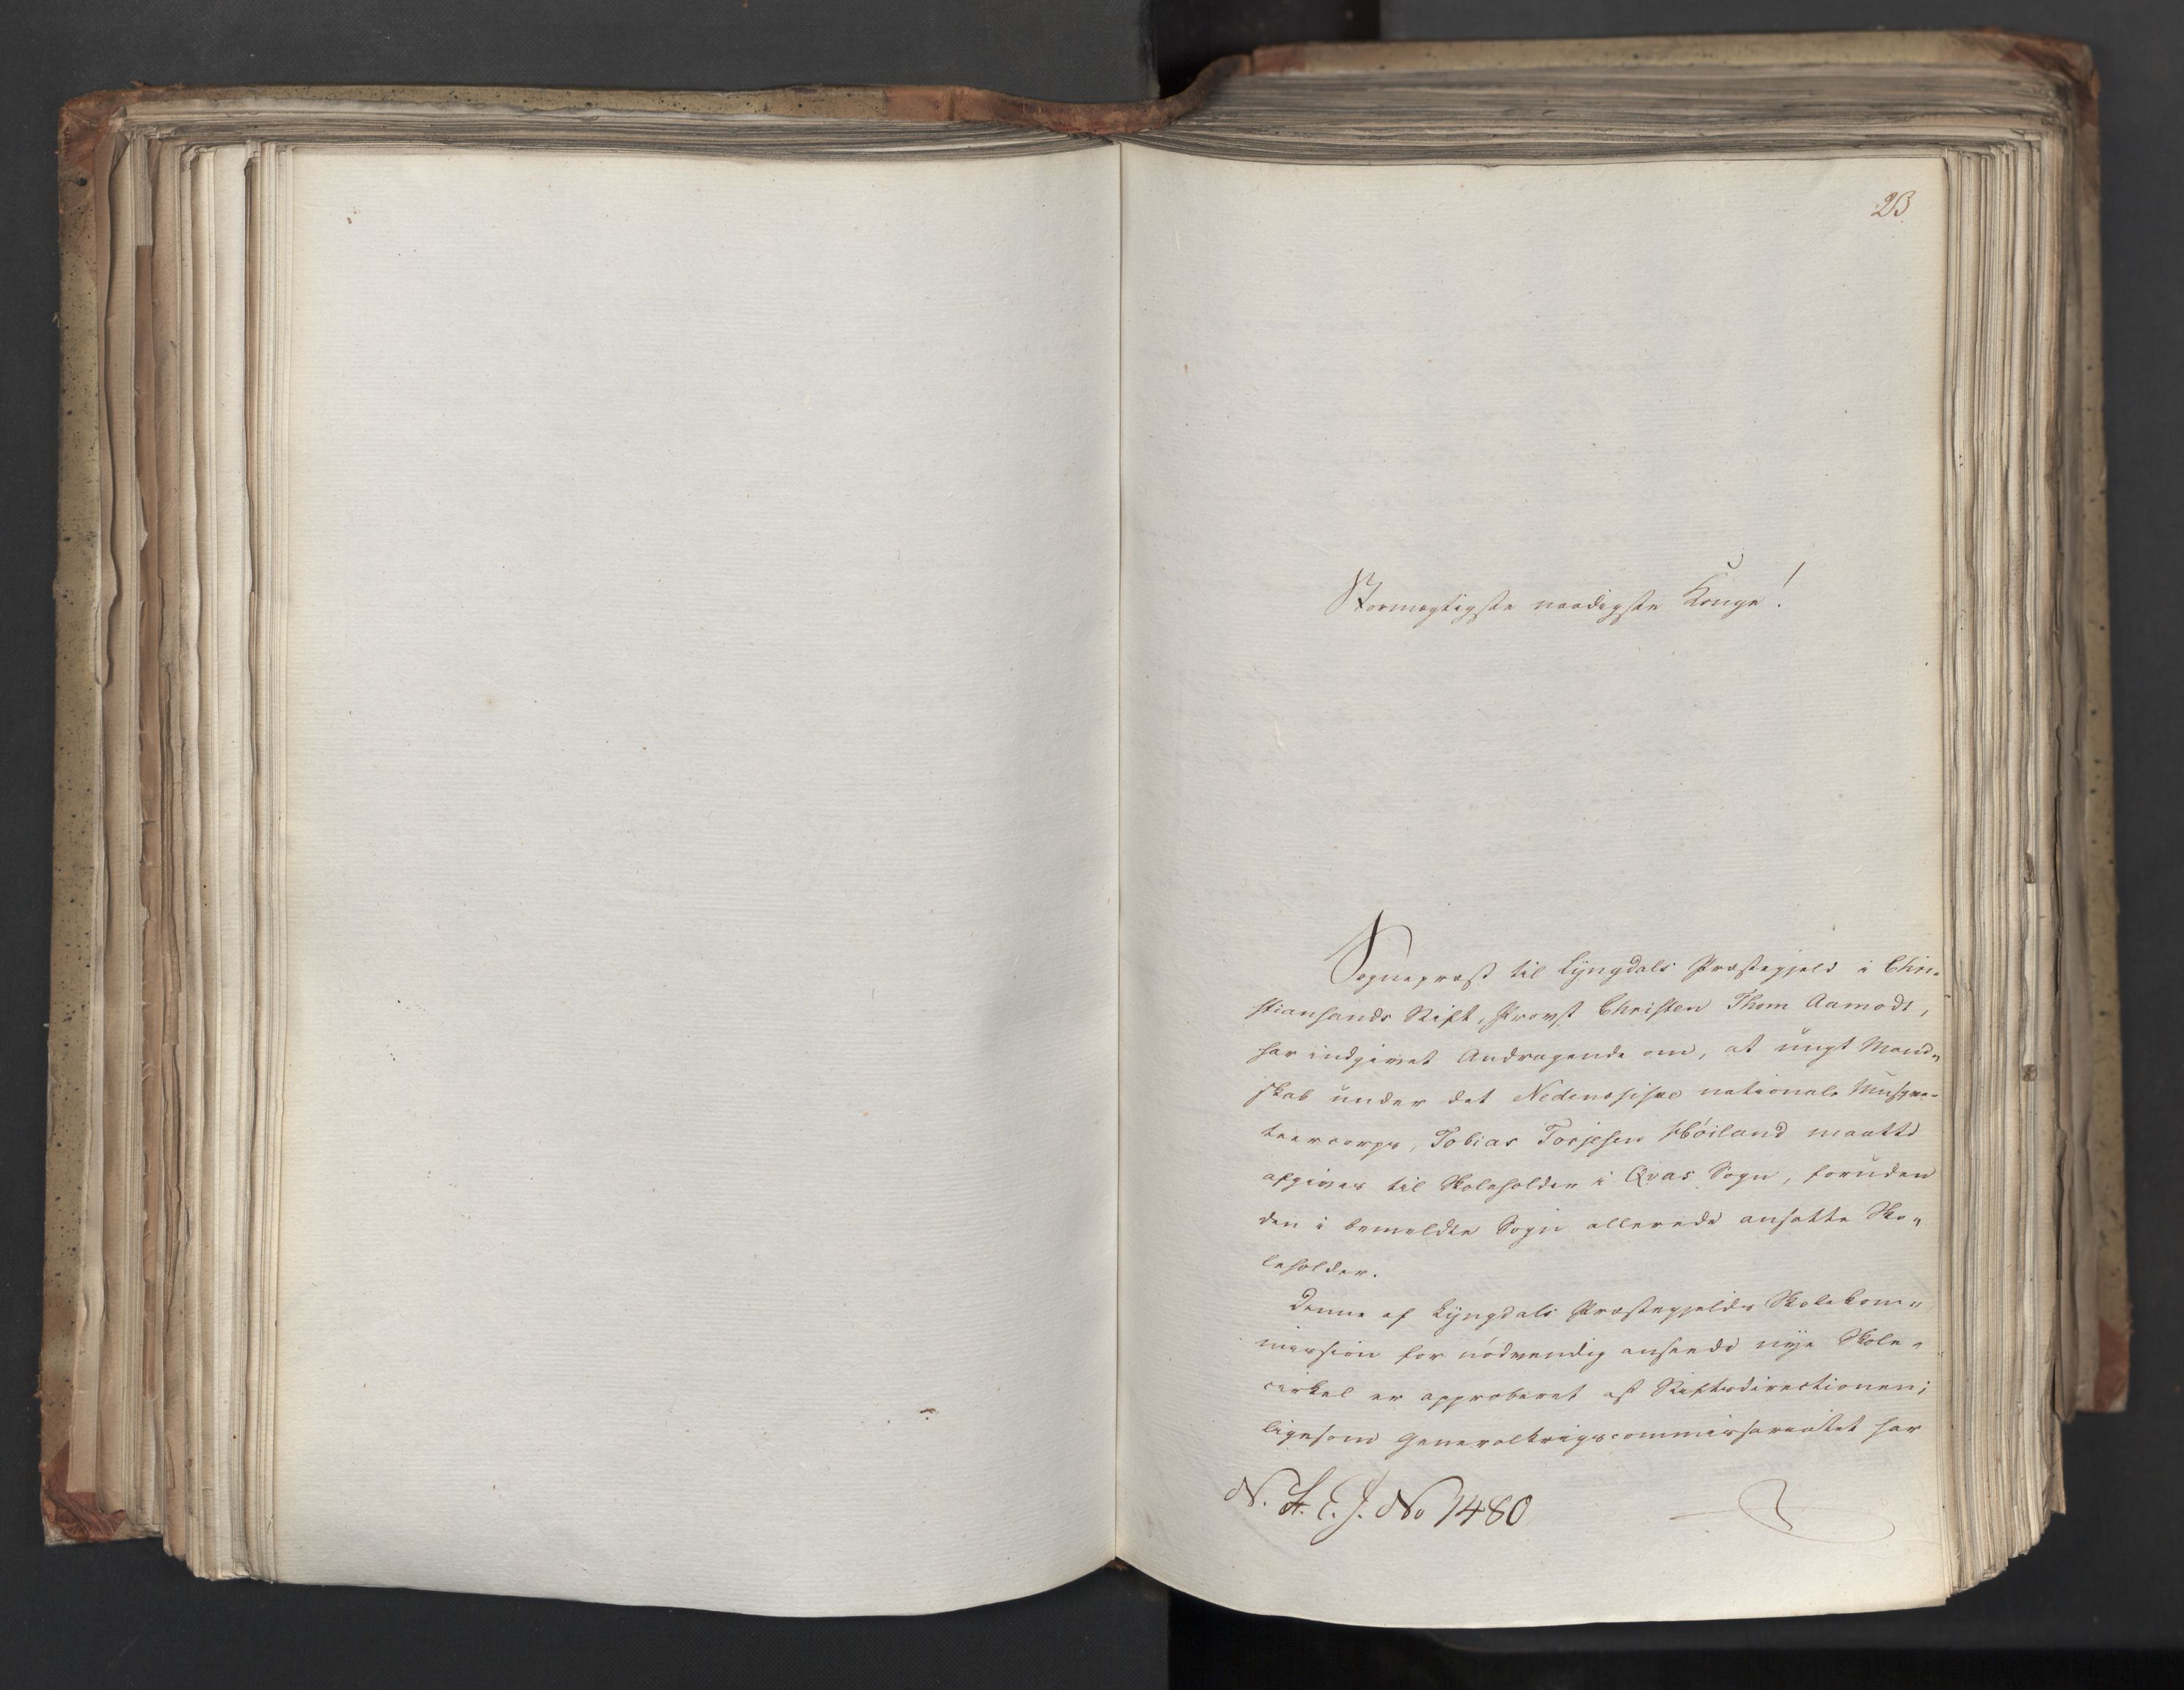 23.
Stormægtigste naadigste Konge!
Sognepræst til Lyngdals Præstegjeld i Chri-
stiansands Stift, Provst Christen Thom Aamodt,
har indgivet Andragende om, at ungt Mand-
skab under det Nedenesiske nationale Musque-
teercorps, Tobias Torjesen Høiland maatte
afgives til Skoleholder i Qvas Sogn, foruden
den i bemeldte Sogn allerede ansatte Sko-
leholder.
Denne af Lyngdals Præstegjelds Skolekom-
mission for nödvendig anseede nye Skole-
cirkel er approberet af Stiftsdirectionen;
ligesom Generalkrigscommissariatet har
N. H. E. J. No 1480